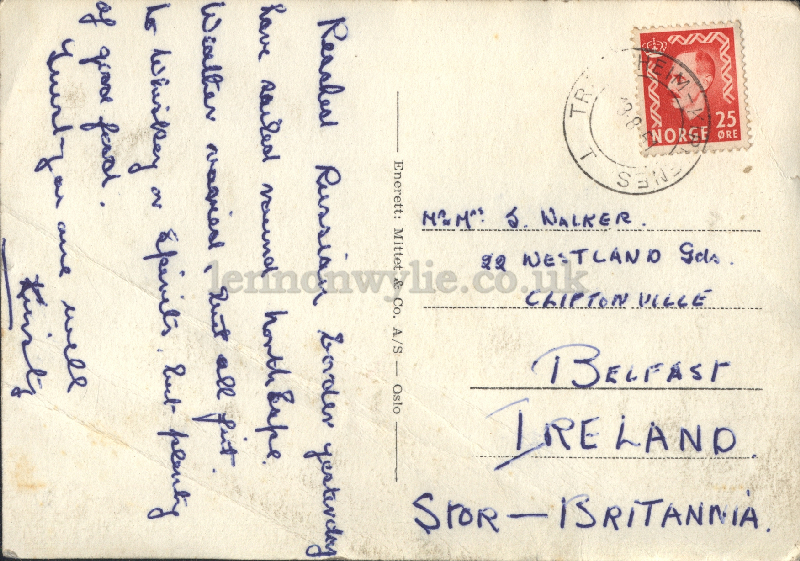 Reached Russian border yesterday
have sailed round North Cape.
Weather varied, but all fit.
No Whiskey or Spirits, but plenty
of good food.
you are well
Kirsty
Enerett: Mittet & Co. A/S — Oslo
NORGE 25 ØRE
Mr Mrs J. WALKER.
22 WESTLAND Gdns.
CLIFTONVILLE
BELFAST
IRELAND.
STOR — BRITANNIA.
lennonwylie.co.uk